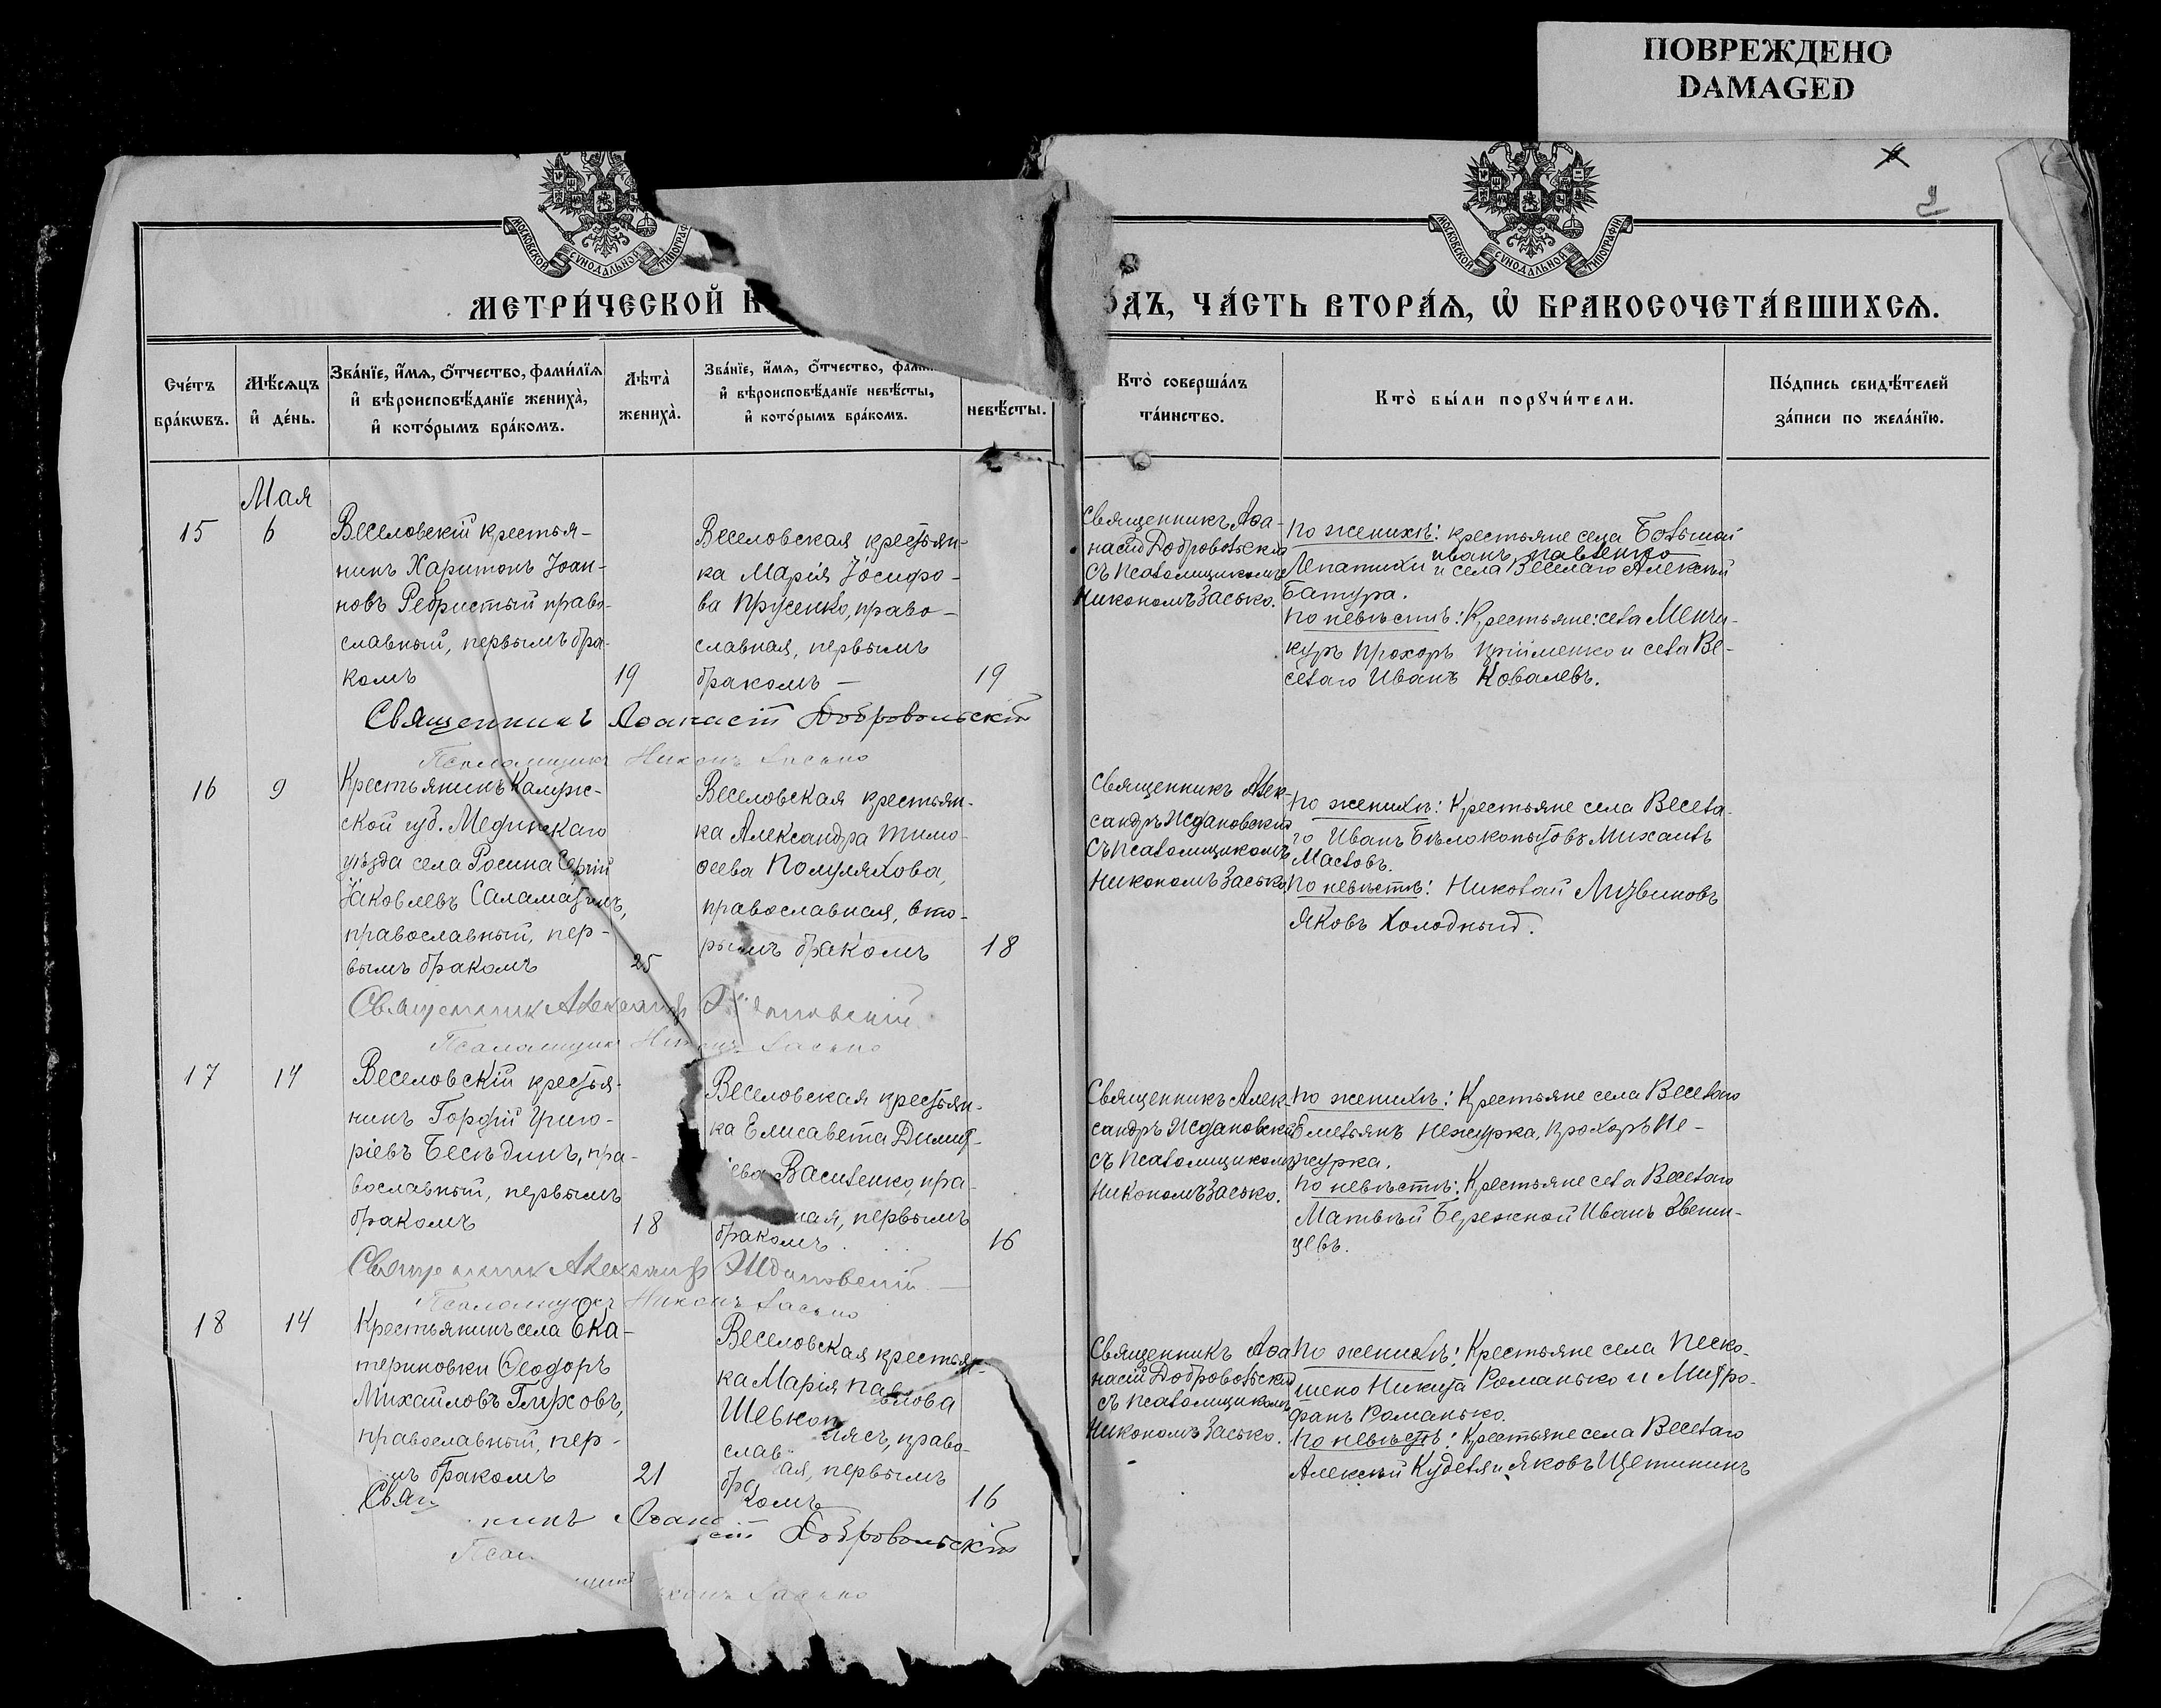 ПОВРЕЖДЕНО
DAMAGED
МОСКОВСКОЙ СѴНОДАЛЬНОЙ ТИПОГРАФ
МОСКОВСКОЙ СѴНОДАЛЬНОЙ ТИПОГРАФІИ
2
МЕТРИ́ЧЕСКОЙ К
ОДЪ, ЧА́СТЬ ВТОРА́Ѧ, Ѡ҆ БРАКОСОЧЕТА́ВШИХСѦ.
Сче́тъ
бра́кѡвъ.
Мѣ́сѧцъ
и҆ де́нь.
Зва́нїе, и҆́мѧ, о҆́тчество, фами́лїѧ
и҆ вѣроисповѣ́данїе жениха̀,
и҆ кото́рымъ бра́комъ.
Лѣта̀
жениха̀.
Зва́нїе, и҆́мѧ, о҆́тчество, фам
и҆ вѣроисповѣ́данїе невѣ́сты,
и҆ кото́рымъ бра́комъ.
невѣ́сты.
Кто̀ соверша́лъ
та́инство.
Кто̀ бы́ли порꙋчи́тели.
По́дпись свидѣ́телей
за́писи по жела́нїю.
Мая
15
6
Веселовскій крестья-
нинъ Харитонъ Іоан-
новъ Ребристый право-
славный, первымъ бра-
комъ
19
Веселовская крестьян-
ка Марія Іосифо-
ва Прусенко, право-
славная, первымъ
бракомъ —
19
Священникъ Аѳа-
насій Добровольскій
съ псаломщикомъ
Никономъ Засько.
По женихѣ: крестьяне села Большой
Иванъ Павленко
Лепатихи и села Веселаго Алексѣй
Батура.
По невѣстѣ: Крестьяне: села Менчи-
куръ Прохоръ Прійменко и села Ве-
селаго Иванъ Ковалевъ.
Священникъ Аѳанасій Добровольскій
Псаломщикъ Никонъ Засько
16
9
Крестьянинъ Калуж-
ской губ. Медынскаго
уѣзда села Росина Сергій
Іаковлевъ Саламатинъ,
православный, пер-
вымъ бракомъ
25
Веселовская крестьян-
ка Александра Тимо-
ѳеева Полуляхова,
православная, вто-
рымъ бракомъ
18
Священникъ Алек-
сандръ Ждановскій
съ псаломщикомъ
Никономъ Засько.
По женихѣ: Крестьяне села Весела-
го Иванъ Бѣлокопытовъ Михаилъ
Масловъ.
По невѣстѣ: Николай Литвиновъ
Яковъ Холодный.
Священникъ Александръ Ждановскій
Псаломщикъ Никонъ Засько
17
14
Веселовскій крестья-
нинъ Гордій Григо-
ріевъ Бесѣдинъ, пра-
вославный, первымъ
бракомъ
18
Веселовская крестьян-
ка Елисавета Димит-
іева Василенко, пра-
ная, первымъ
бракомъ.
16
Священникъ Алек-
сандръ Ждановскій
съ псаломщикомъ
Никономъ Засько.
По женихѣ: Крестьяне села Веселаго
Емельянъ Нежурка, Прохоръ Не-
журка.
По невѣстѣ: Крестьяне села Веселаго
Матвѣй Бережной Иванъ Звеnи-
цевъ.
Священникъ Александръ Ждановскій
Псаломщикъ Никонъ Засько
18
14
Крестьянинъ села Ека-
териновки Ѳеодоръ
Михайловъ Глуховъ,
православный, пер-
мъ бракомъ
21
Веселовская крестьян-
ка Марія Павлова
Шевкоп лясъ, право-
слав ая, первымъ
бра комъ
16
Священникъ Аѳа
насій Добровольскій
съ псаломщикомъ
Никономъ Засько.
По женихѣ: Крестьяне села Песко-
шено Никита Романько и Митро-
фанъ Романько.
По невѣстѣ: Крестьяне села Веселаго
Алексѣй Куделя и Яковъ Щетининъ
Свящ никъ Аѳанасій Добровольскій
Псал щикъ конъ Засько